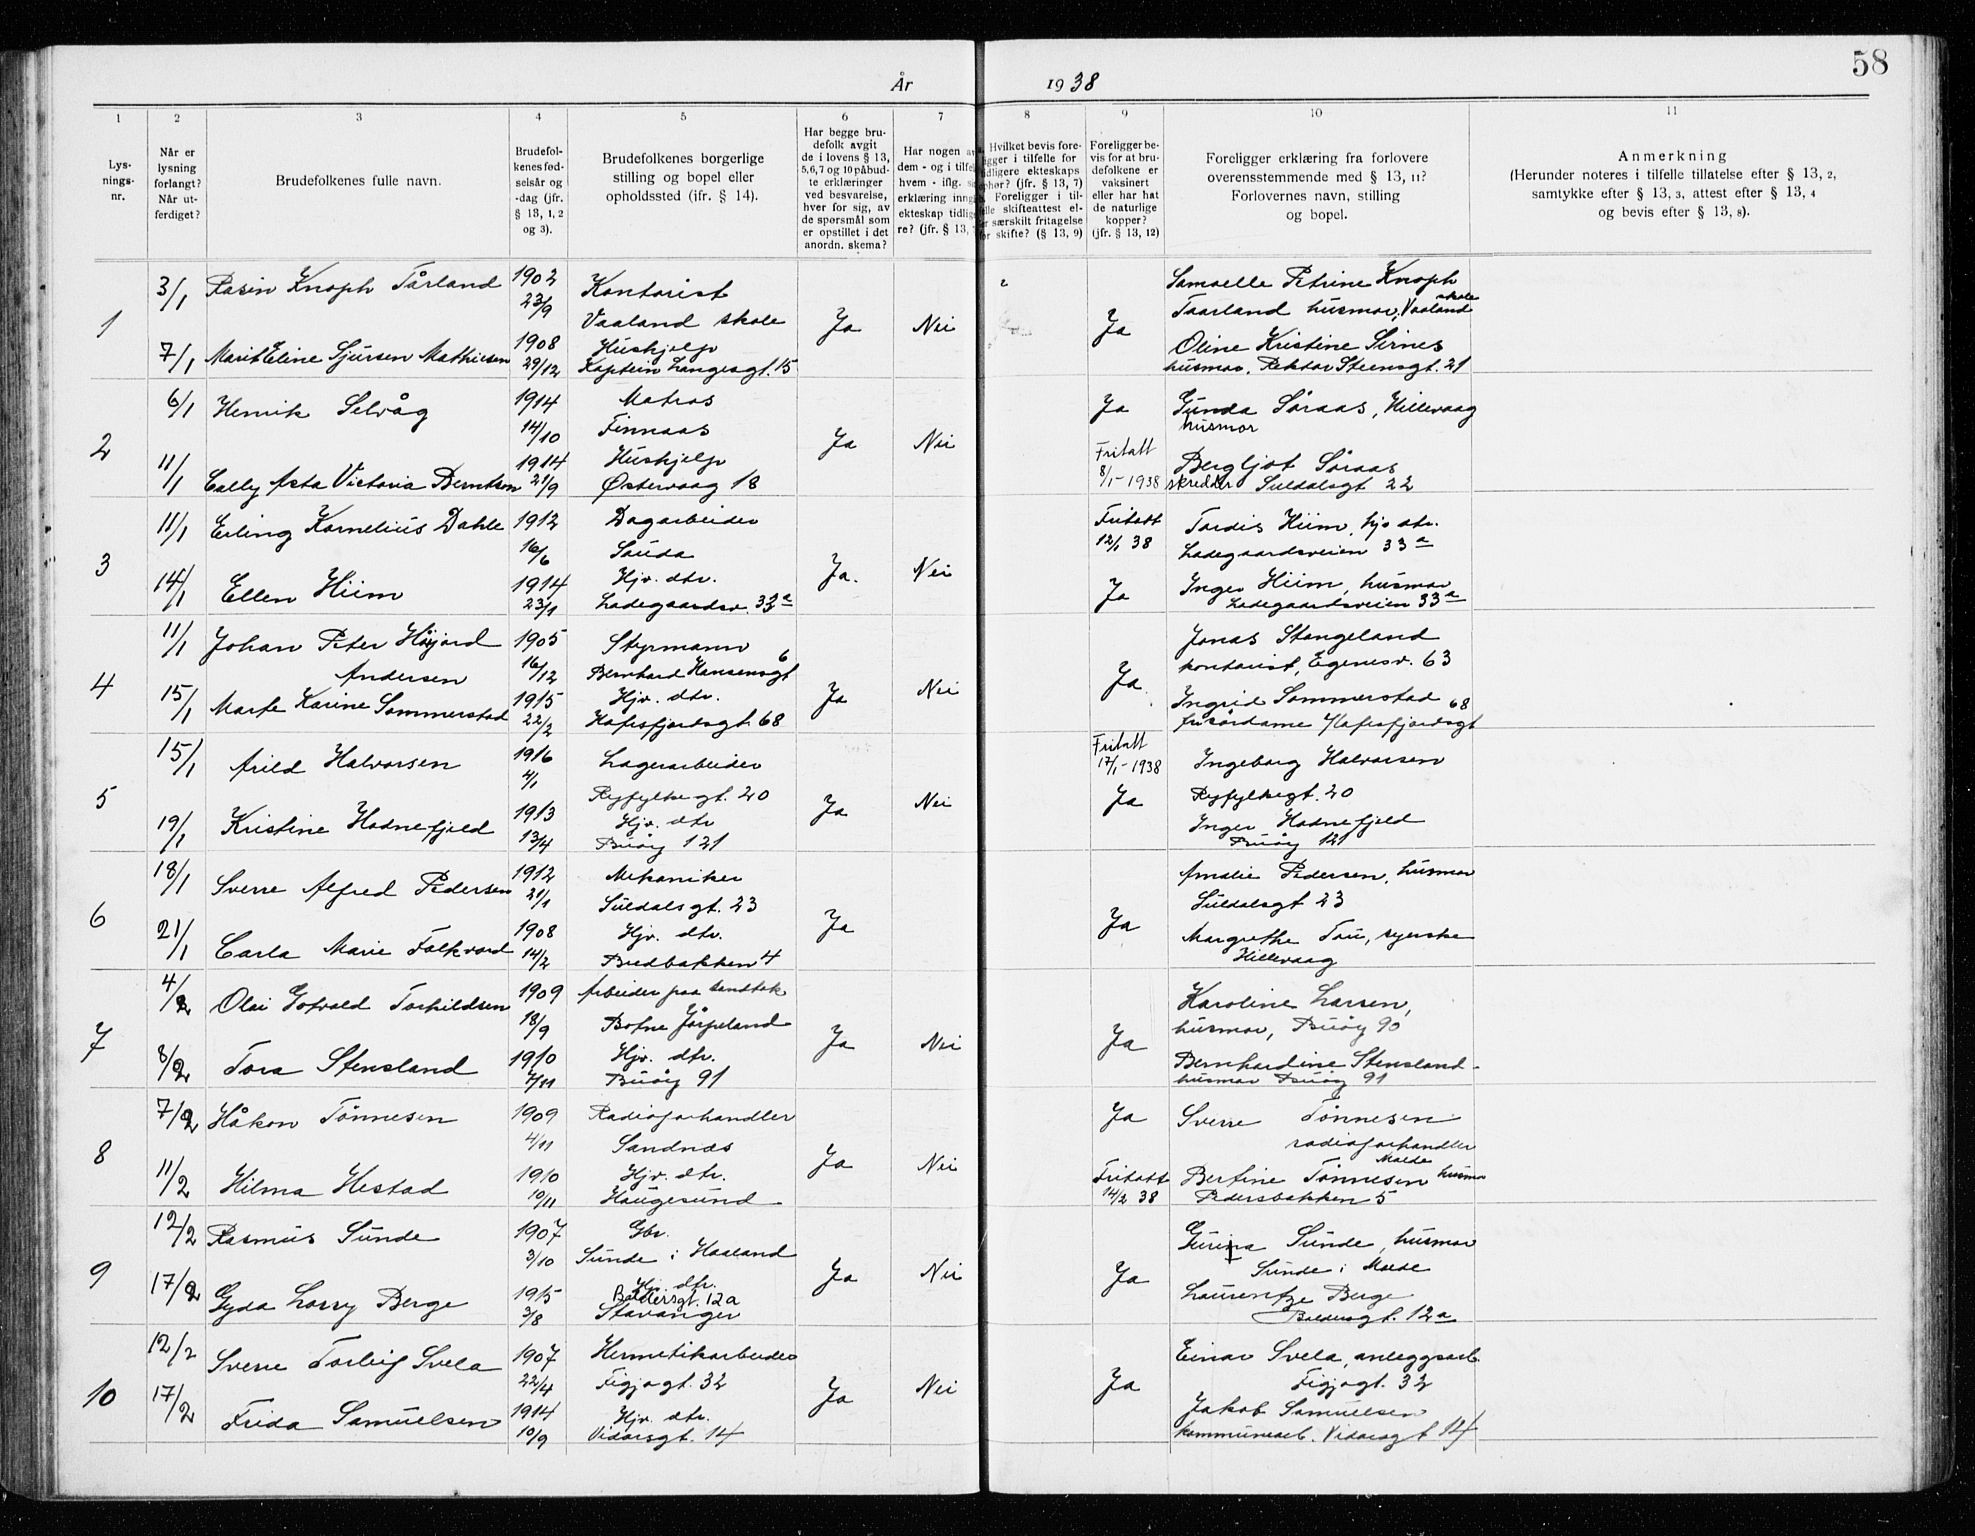 58
År 1938
1 2 3 4 5 6 7 8 9 10 11
Lysningsnr.
Når er lysning forlangt? Når utferdiget?
Brudefolkenes fulle navn.
Brudefolkenes fødselsår og -dag (jfr. § 13, 1, 2 og 3).
Brudefolkenes borgerlige stilling og bopel eller opholdssted (jfr. § 14).
Har begge brudefolk avgit de i lovens § 13, 5,6,7 og 10 påbudte erklæringer ved besvarelse, hver for sig, av de spørsmål som er opstillet i det anordn. skema?
Har nogen av dem - og i tilfelle hvem - iflg. erklæring inngått ekteskap tidligere? (jfr. § 13,
Hvilket bevis foreligger i tilfelle for tidligere ekteskaps ophør? (jfr. § 13, 7) Foreligger i tilfelle skifteattest eller særskilt fritagelse for skifte? (§ 13, 9)
Foreligger bevis for at brudefolkene er vaksinert eller har hat de naturlige kopper? (jfr. § 13, 12)
Foreligger erklæring fra forlovere overensstemmende med § 13, 11? Forlovernes navn, stilling og bopel.
Anmerkning
(Herunder noteres i tilfelle tillatelse efter § 13, 2, samtykke efter § 13, 3, attest efter § 13, 4 og bevis efter § 13, 8).
1 3/1 Rasin Knoph Tårland 1902 23/9 Kontorist Vaaland skole Ja Nei Ja Samoelle Petrine Knoph Taarland husmor, Vaaland skole
7/1 Marit Eline Sjursen Mathiesen 1908 29/12 Huskjelp Kaptein Langesgt. 15 Oline Kristine Sirnes husmor. Rektor Steensgt. 21
2 6/1 Henrik Selvåg 1914 14/10 Matros Finnaas Ja Nei Ja Gunda Søraas, Hillevaag husmor
11/1 Cally Asta Victoria Berntsen 1914 21/9 Huskjelp Østervaag 18 Fritatt 8/1-1938 Bergljot Søraas skredder Suldalsgt 22
3 11/1 Erling Kornelius Dahle 1912 16/6 Dagarbeider Sauda Ja. Nei Fritatt 12/1 38 Tordis Hiim, hjv dtr. Ladegaardsveien 33a
14/1 Ellen Hiim 1914 23/1 Hjv. dtr. Ladegaardsv. 33a Ja Inger Hiim, husmor Ladegaardsveien 33a
4 11/1 Johan Peter Høyjord Andersen 1905 16/12 Styrmann Bernhard Hansensgt 6 Ja Nei Ja Jonas Stangeland kontorist, Egenesv. 63
15/1 Marte Karine Sommerstad 1915 22/2 Hjv. dtr. Hafrsfjordsgt. 68 Ingrid Sommerstad frisørdame Hafrsfjordsgt 68
5 15/1 Arild Halvorsen 1916 4/1 Lagerarbeider Ryfylkegt. 20 Ja Nei Fritatt 17/1-1938 Ingeborg Halvorsen Ryfylkegt. 20
19/1 Kristine Hodnefjeld 1913 13/4 Hjv. dtr Buøy 121 Ja Inger Hodnefjeld Buøy 121
6 18/1 Sverre Alfred Pedersen 1912 21/1 Mekaniker Suldalsgt. 23 Ja Ja Amalie Pedersen, husmor Suldalsgt 23
21/1 Carla Marie Folkvord 1908 14/2 Hjv. dtr. Bredbakken 4 Margrethe Tou, syerske Hillevaag
7 4/2 Olai Gotvald Torkildsen 1909 18/9 Arbeider paa Botne Jørpeland Ja Nei Ja Karoline Larsen, husmor, Buøy 90
8/2 Tora Stensland 1910 7/11 Hjv. dtr. Buøy 91 Bernhardine Stensland husmor Buøy 91
8 7/2 Håkon Tønnesen 1909 4/11 Radioforhandler Sandnes Ja Nei Ja Sverre Tønnesen radioforhandler Molde
11/2 Hilma Hestad 1910 10/11 Hjv. dtr. Haugesund Fritatt 14/2 38 Bertine Tønnesen husmor Pedersbakken 5
9 12/2 Rasmus Sunde 1907 3/10 Gbr. Sunde i Haaland Ja Nei Ja Gurina Sunde, husmor Sunde i Molde
17/2 Gyda Lorry Berge 1915 3/8 Hjv. dtr. Baldersgt. 12a Stavanger Laurentze Berge Baldersgt. 12a
10 12/2 Sverre Torleif Svela 1907 22/4 Hermetikarbeider Figjogt. 32 Ja Nei Ja Einar Svela, anleggsarb. Figjogt. 32
17/2 Frida Samuelsen 1914 10/9 Hjv. dtr. Vidarsgt. 14 Jakob Samuelsen kommunearb. Vidarsgt 14